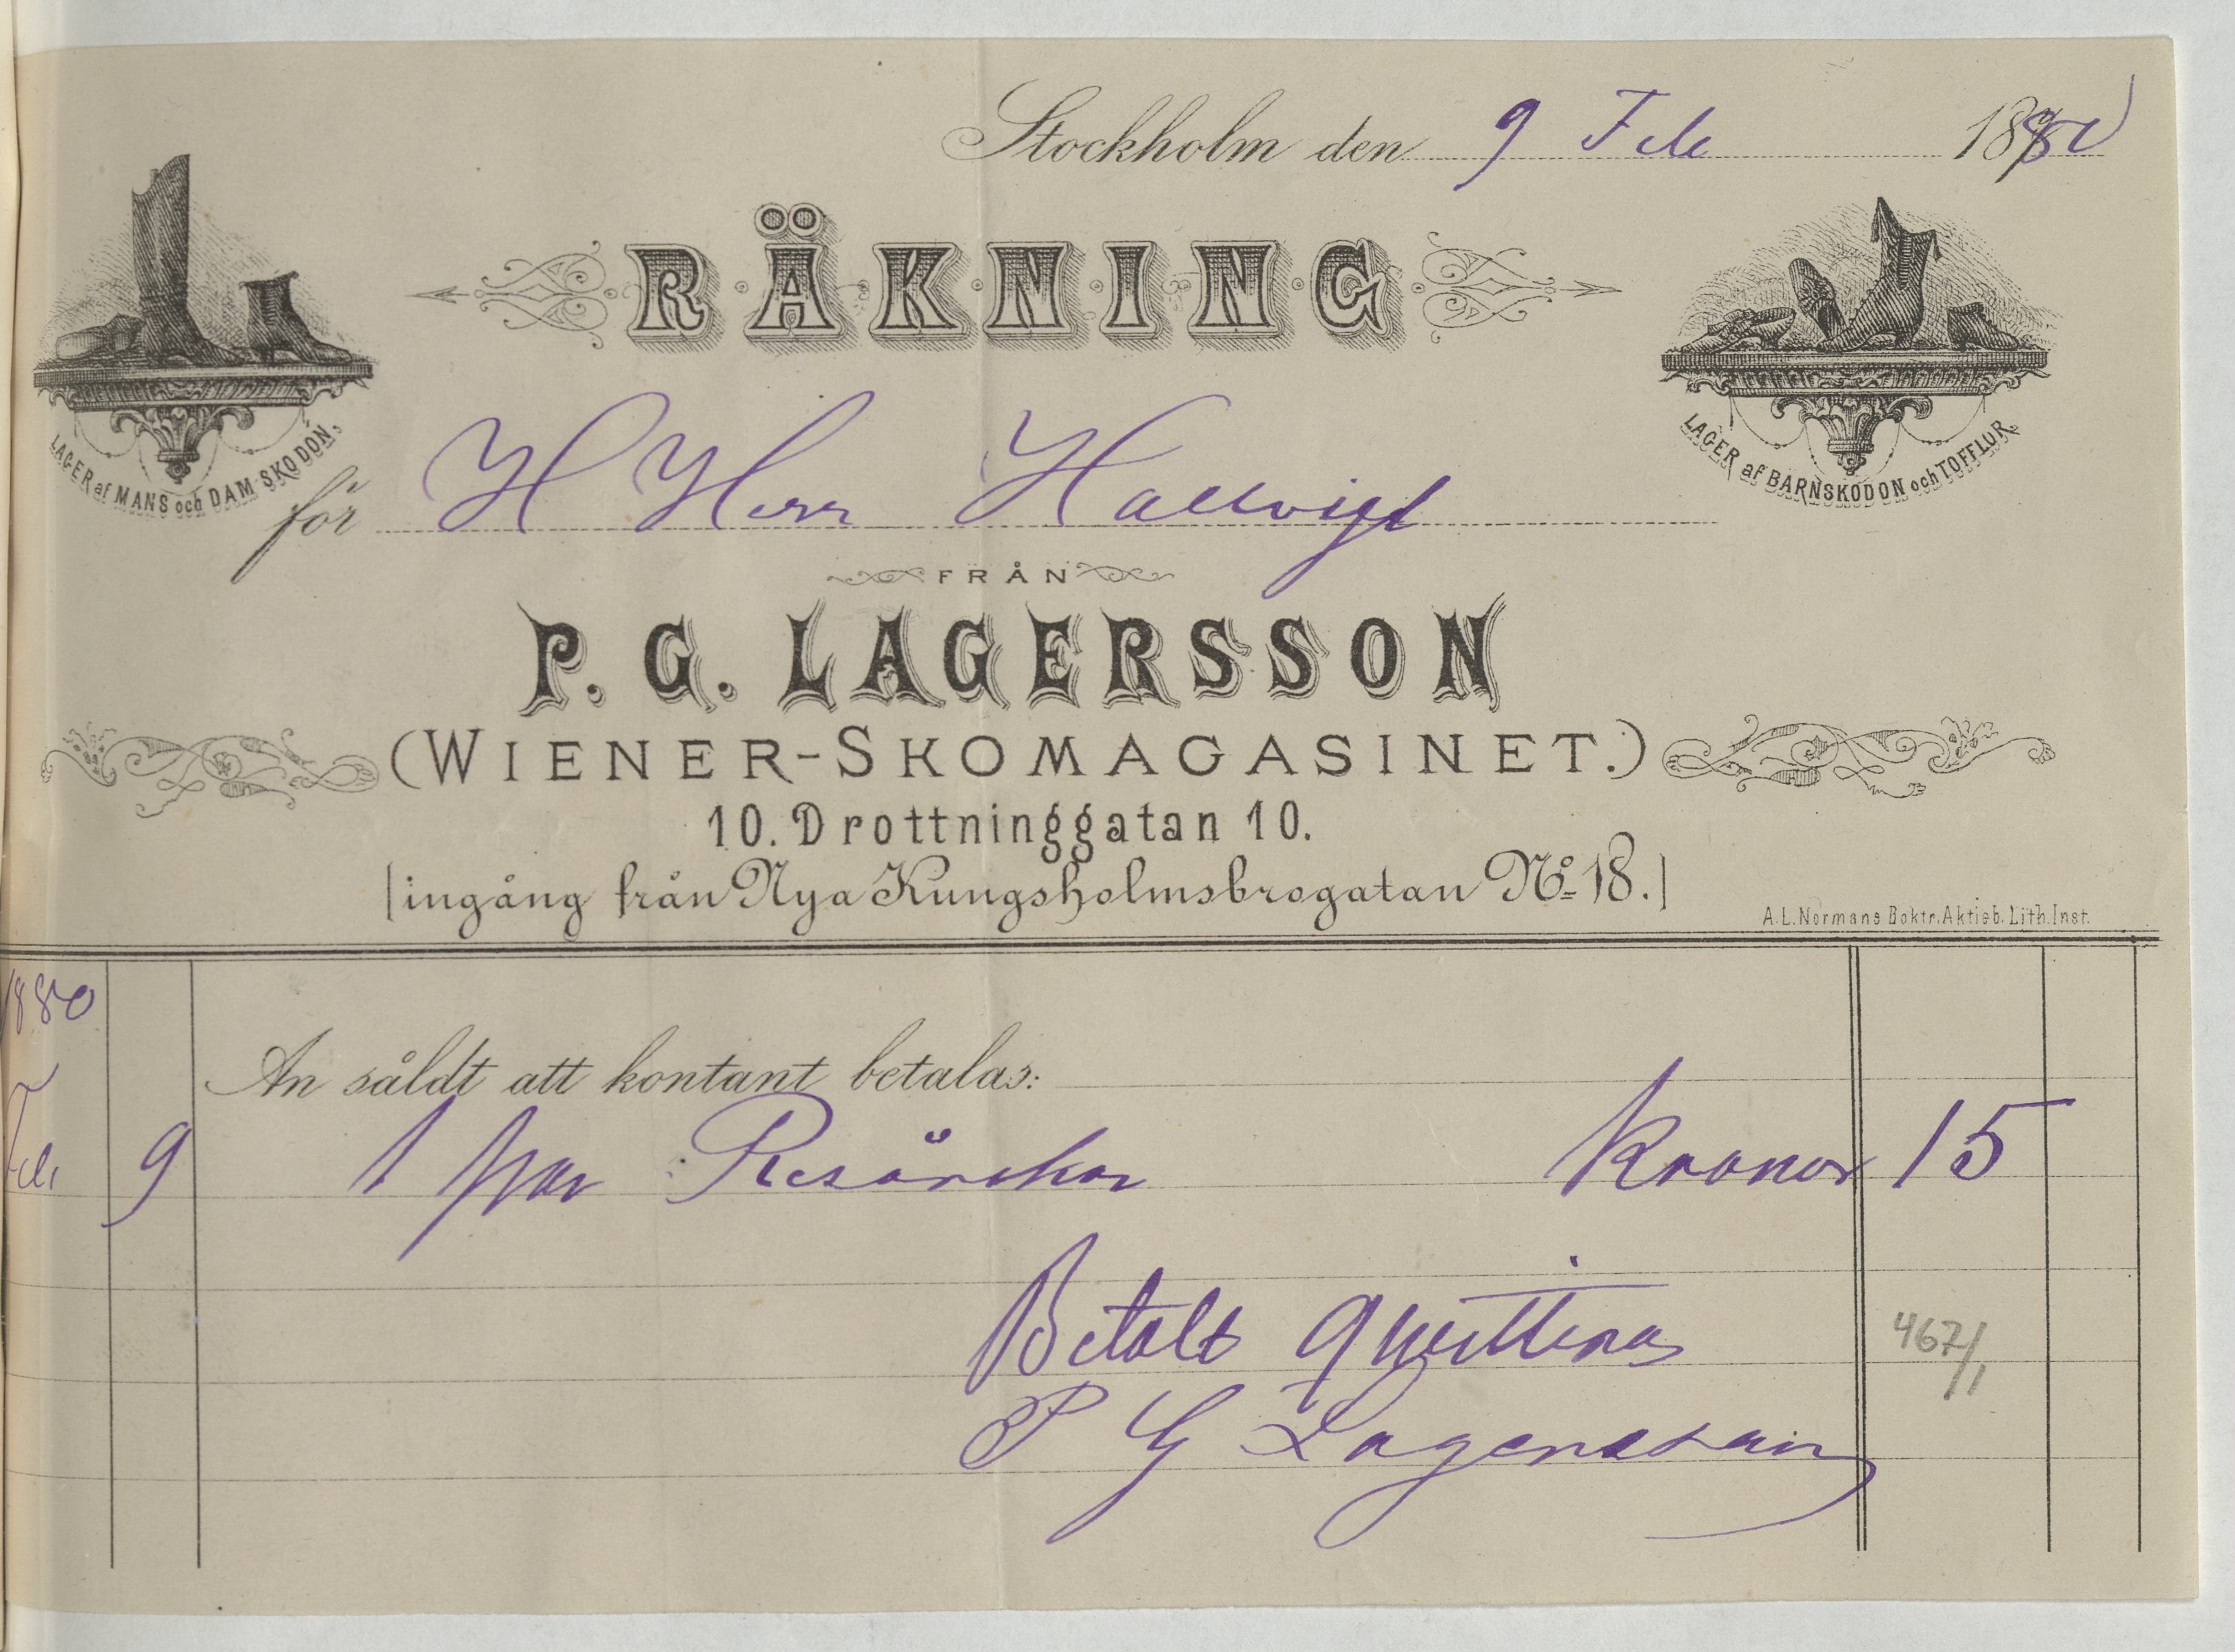 Stockholm den 9 Feb 1880
RÄKNING
LAGER af MANS och DAM-SKODON,
LAGER af BARNSKODON och TOFFLOR
för H Herr Hallvigl
FRÅN
P. G. LAGERSSON
(WIENER-SKOMAGASINET.)
10. Drottninggatan 10.
(ingång från Nya Kungsholmsbrogatan No 18.)
A.L.Normans Boktr.Aktieb. Lith.Inst.
1880
An såldt att kontant betalas:
Feb 9 1 par Resårskor Kronor 15
Betalt qvitteras
467/1
P G Lagersson